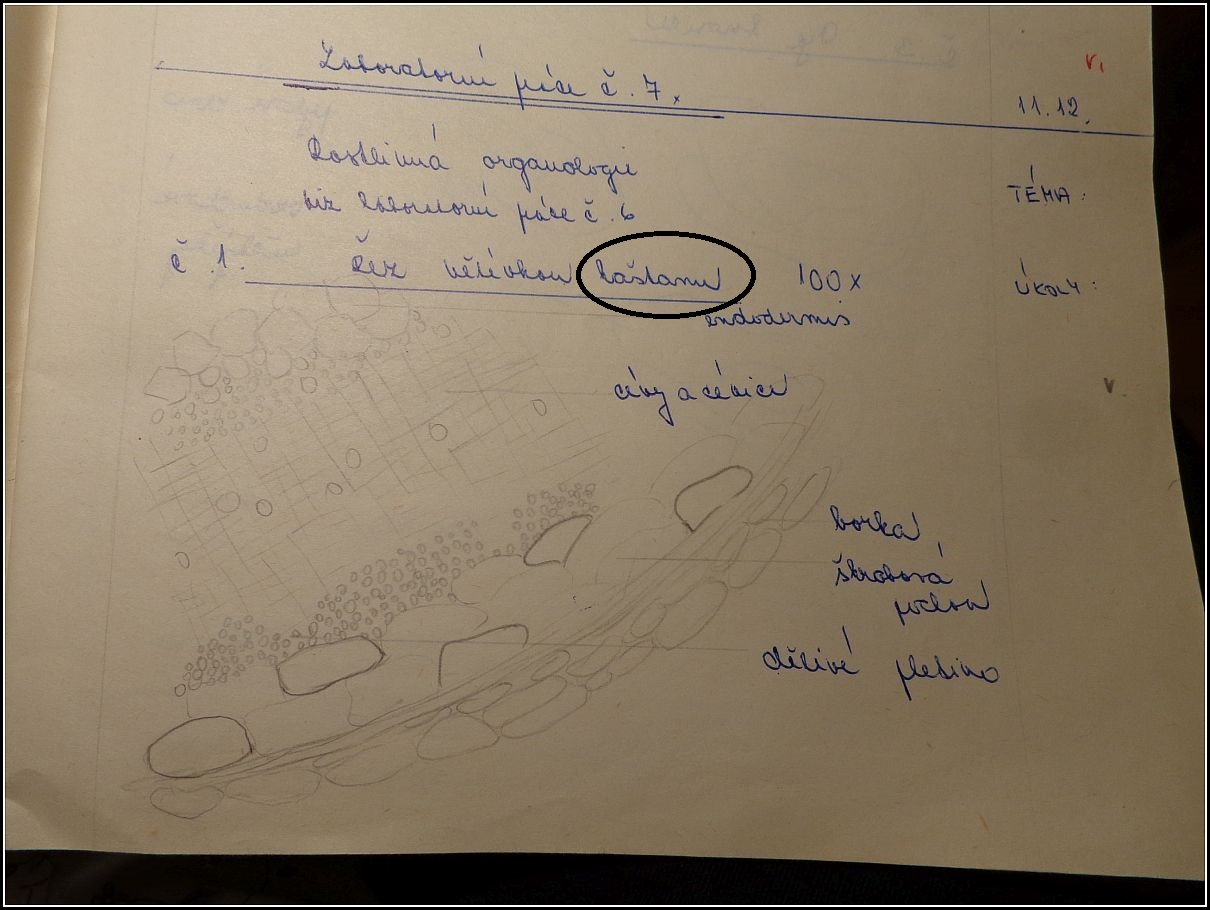 Laboratorní práce č. 7.
11.12.
Rostlinná organologie
TÉMA:
viz laboratorní práce č. 6
č. 1. Řez větévkou kaštanu 100x
ÚKOLY:
endodermis
cévy a cévice
borka
škrobová
pochva
dělivé pletivo